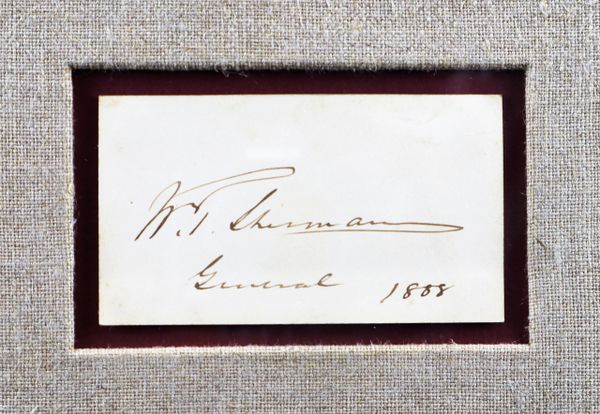 W. T. Sherman
General 1888